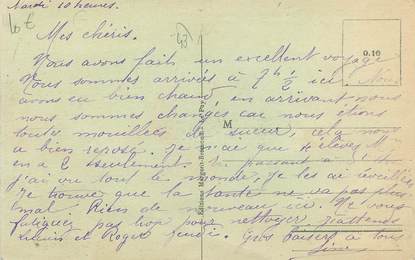 Mardi 10 heures.
Mes chéris.
Nous avons fait un excellent voyage
Nous sommes arrivés à 7h ½ ici. Nous
avons eu bien chaud, en arrivant nous
nous sommes changés car nous étions
toutes mouillées de sueur, cela nous
a bien reposé. Je n'ai que 4 élèves
en a 2 seulement. en passant à
j'ai vu tout le monde, je les ai
Je trouve que la tante ne va pas plus
mal. Rien de nouveau ici. Ne vous
fatiguez pas trop pour nettoyer j'attends
et Roger jeudi. Gros baisers à tous
0.10
M